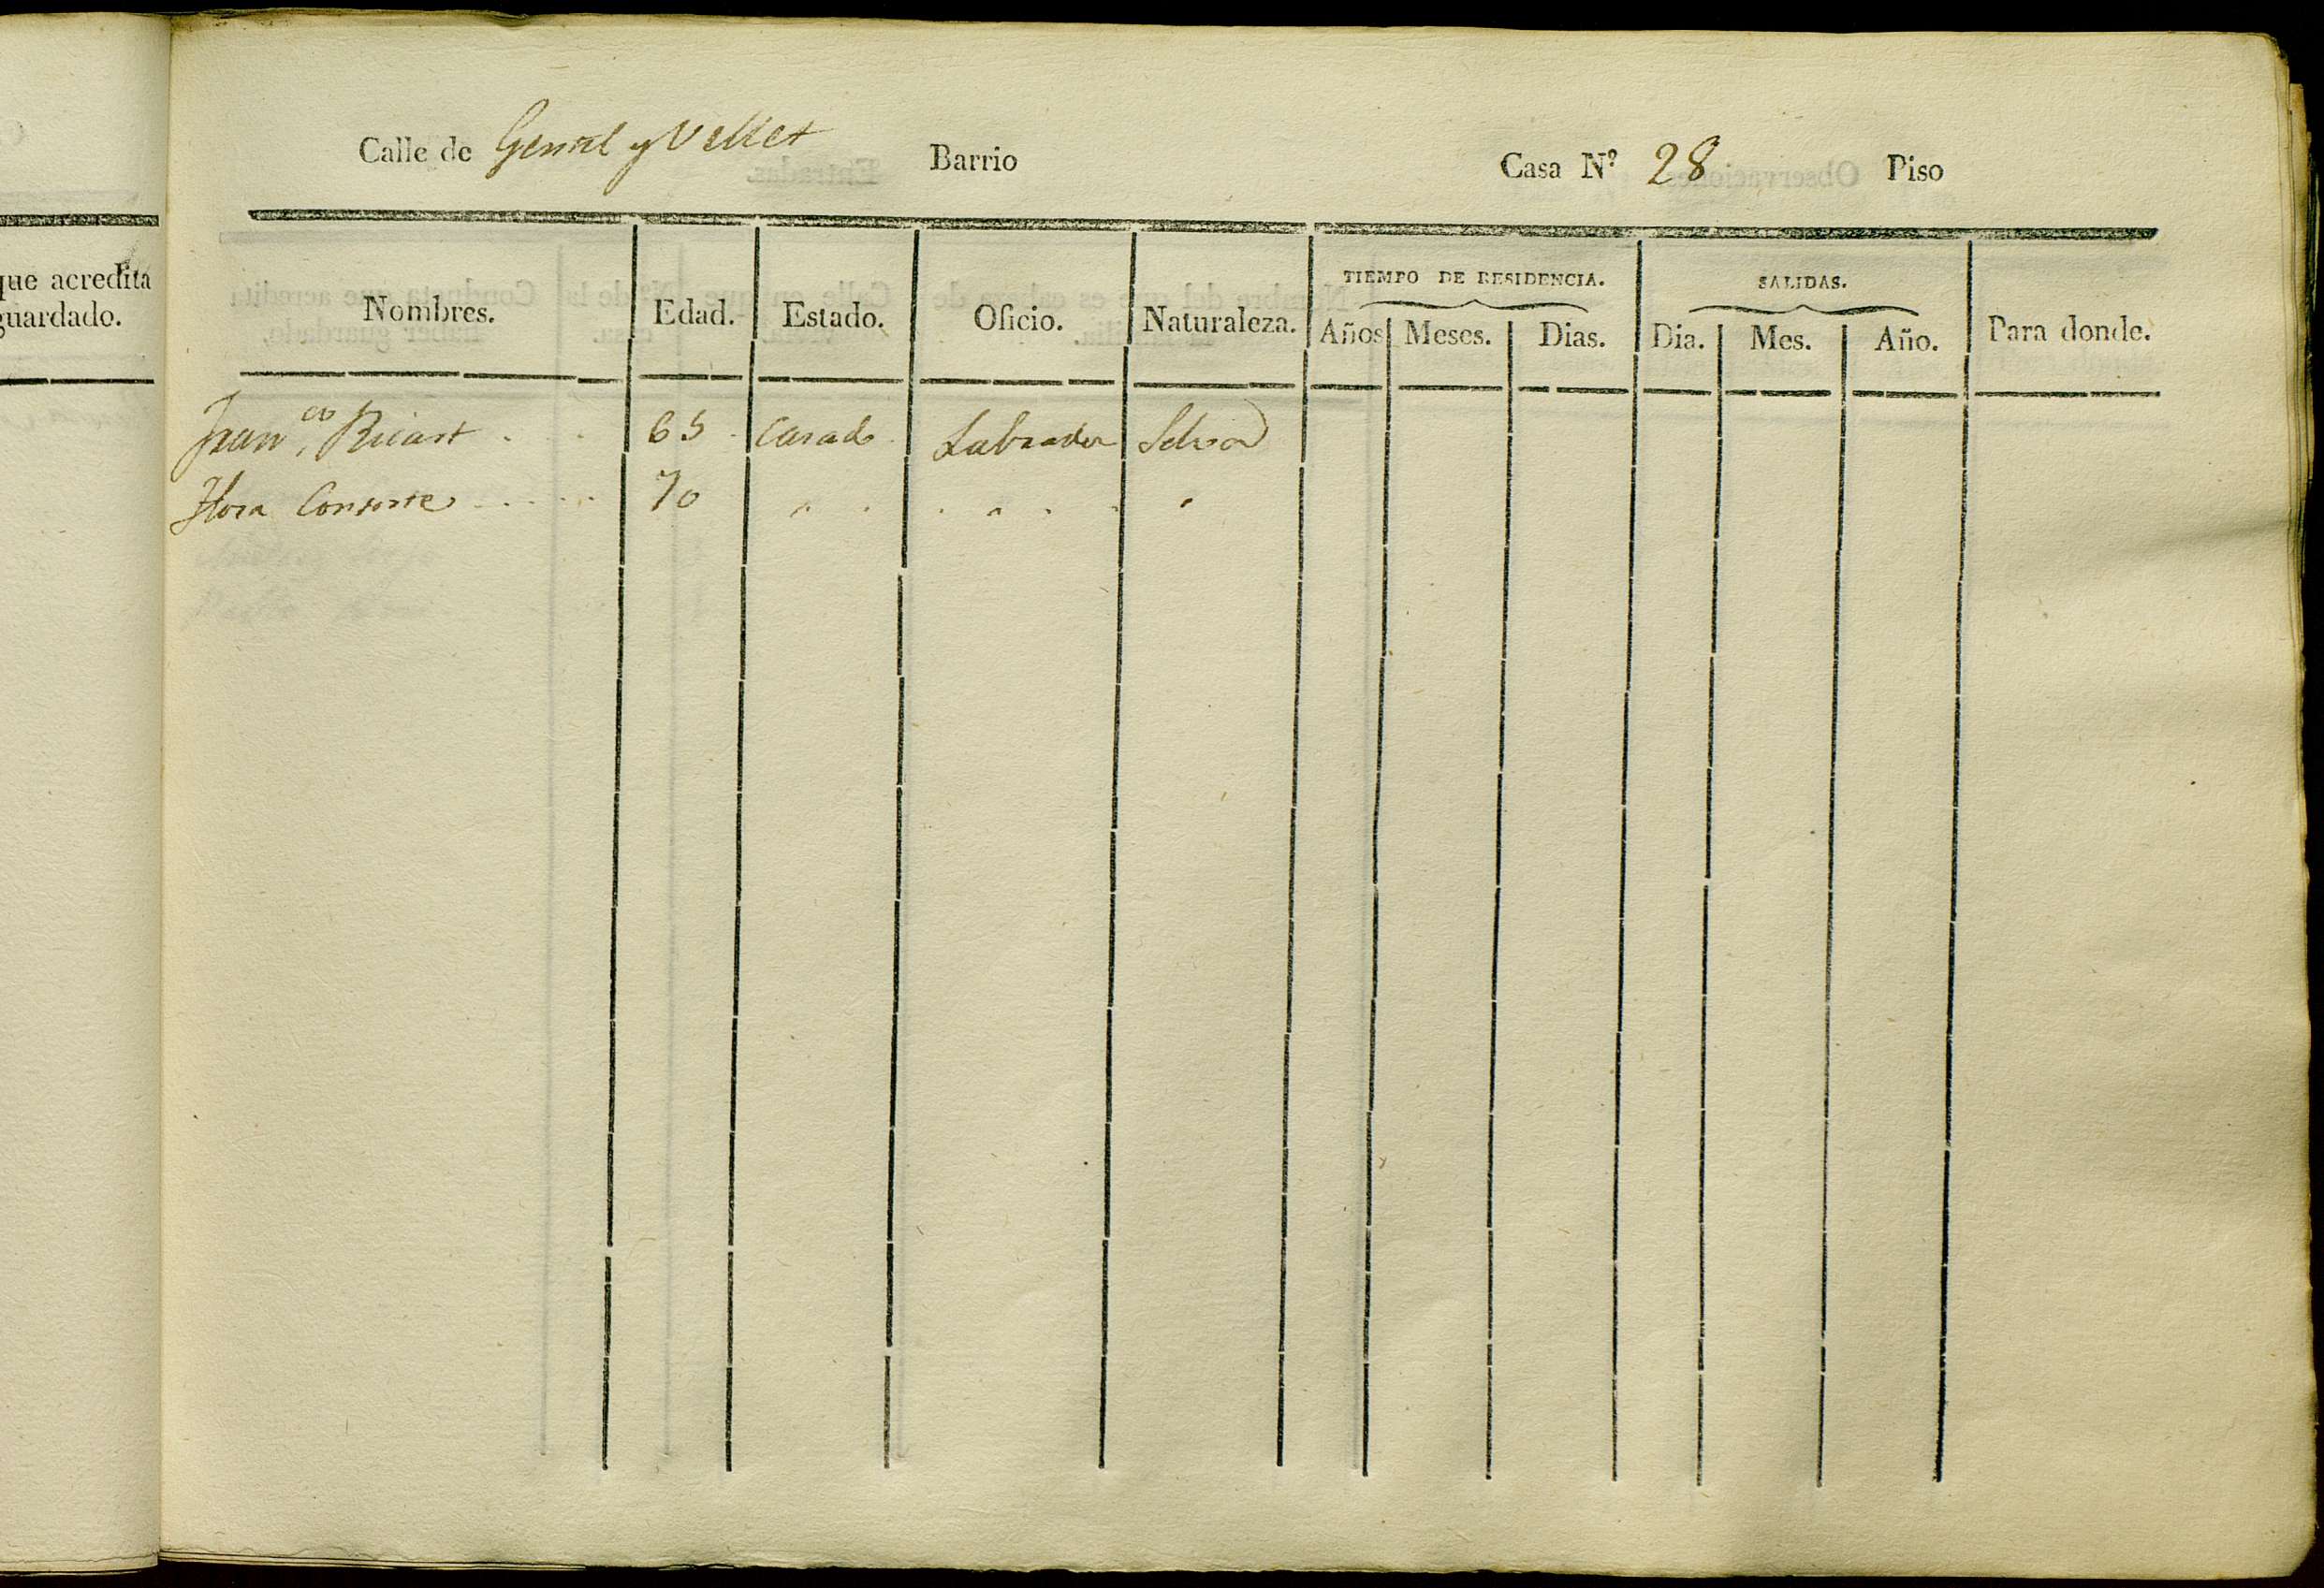 que acredita
guardado.
Calle de y Vellet Barrio Casa Nº 28 Piso
Nombres. Edad. Estado. Oficio. Naturaleza. TIEMPO DE RESIDENCIA. Años Meses. Dias. SALIDAS. Dia. Mes. Año. Para donde.
Fran.co Ricart 65 Casado Labrador
Flora Consorte 70